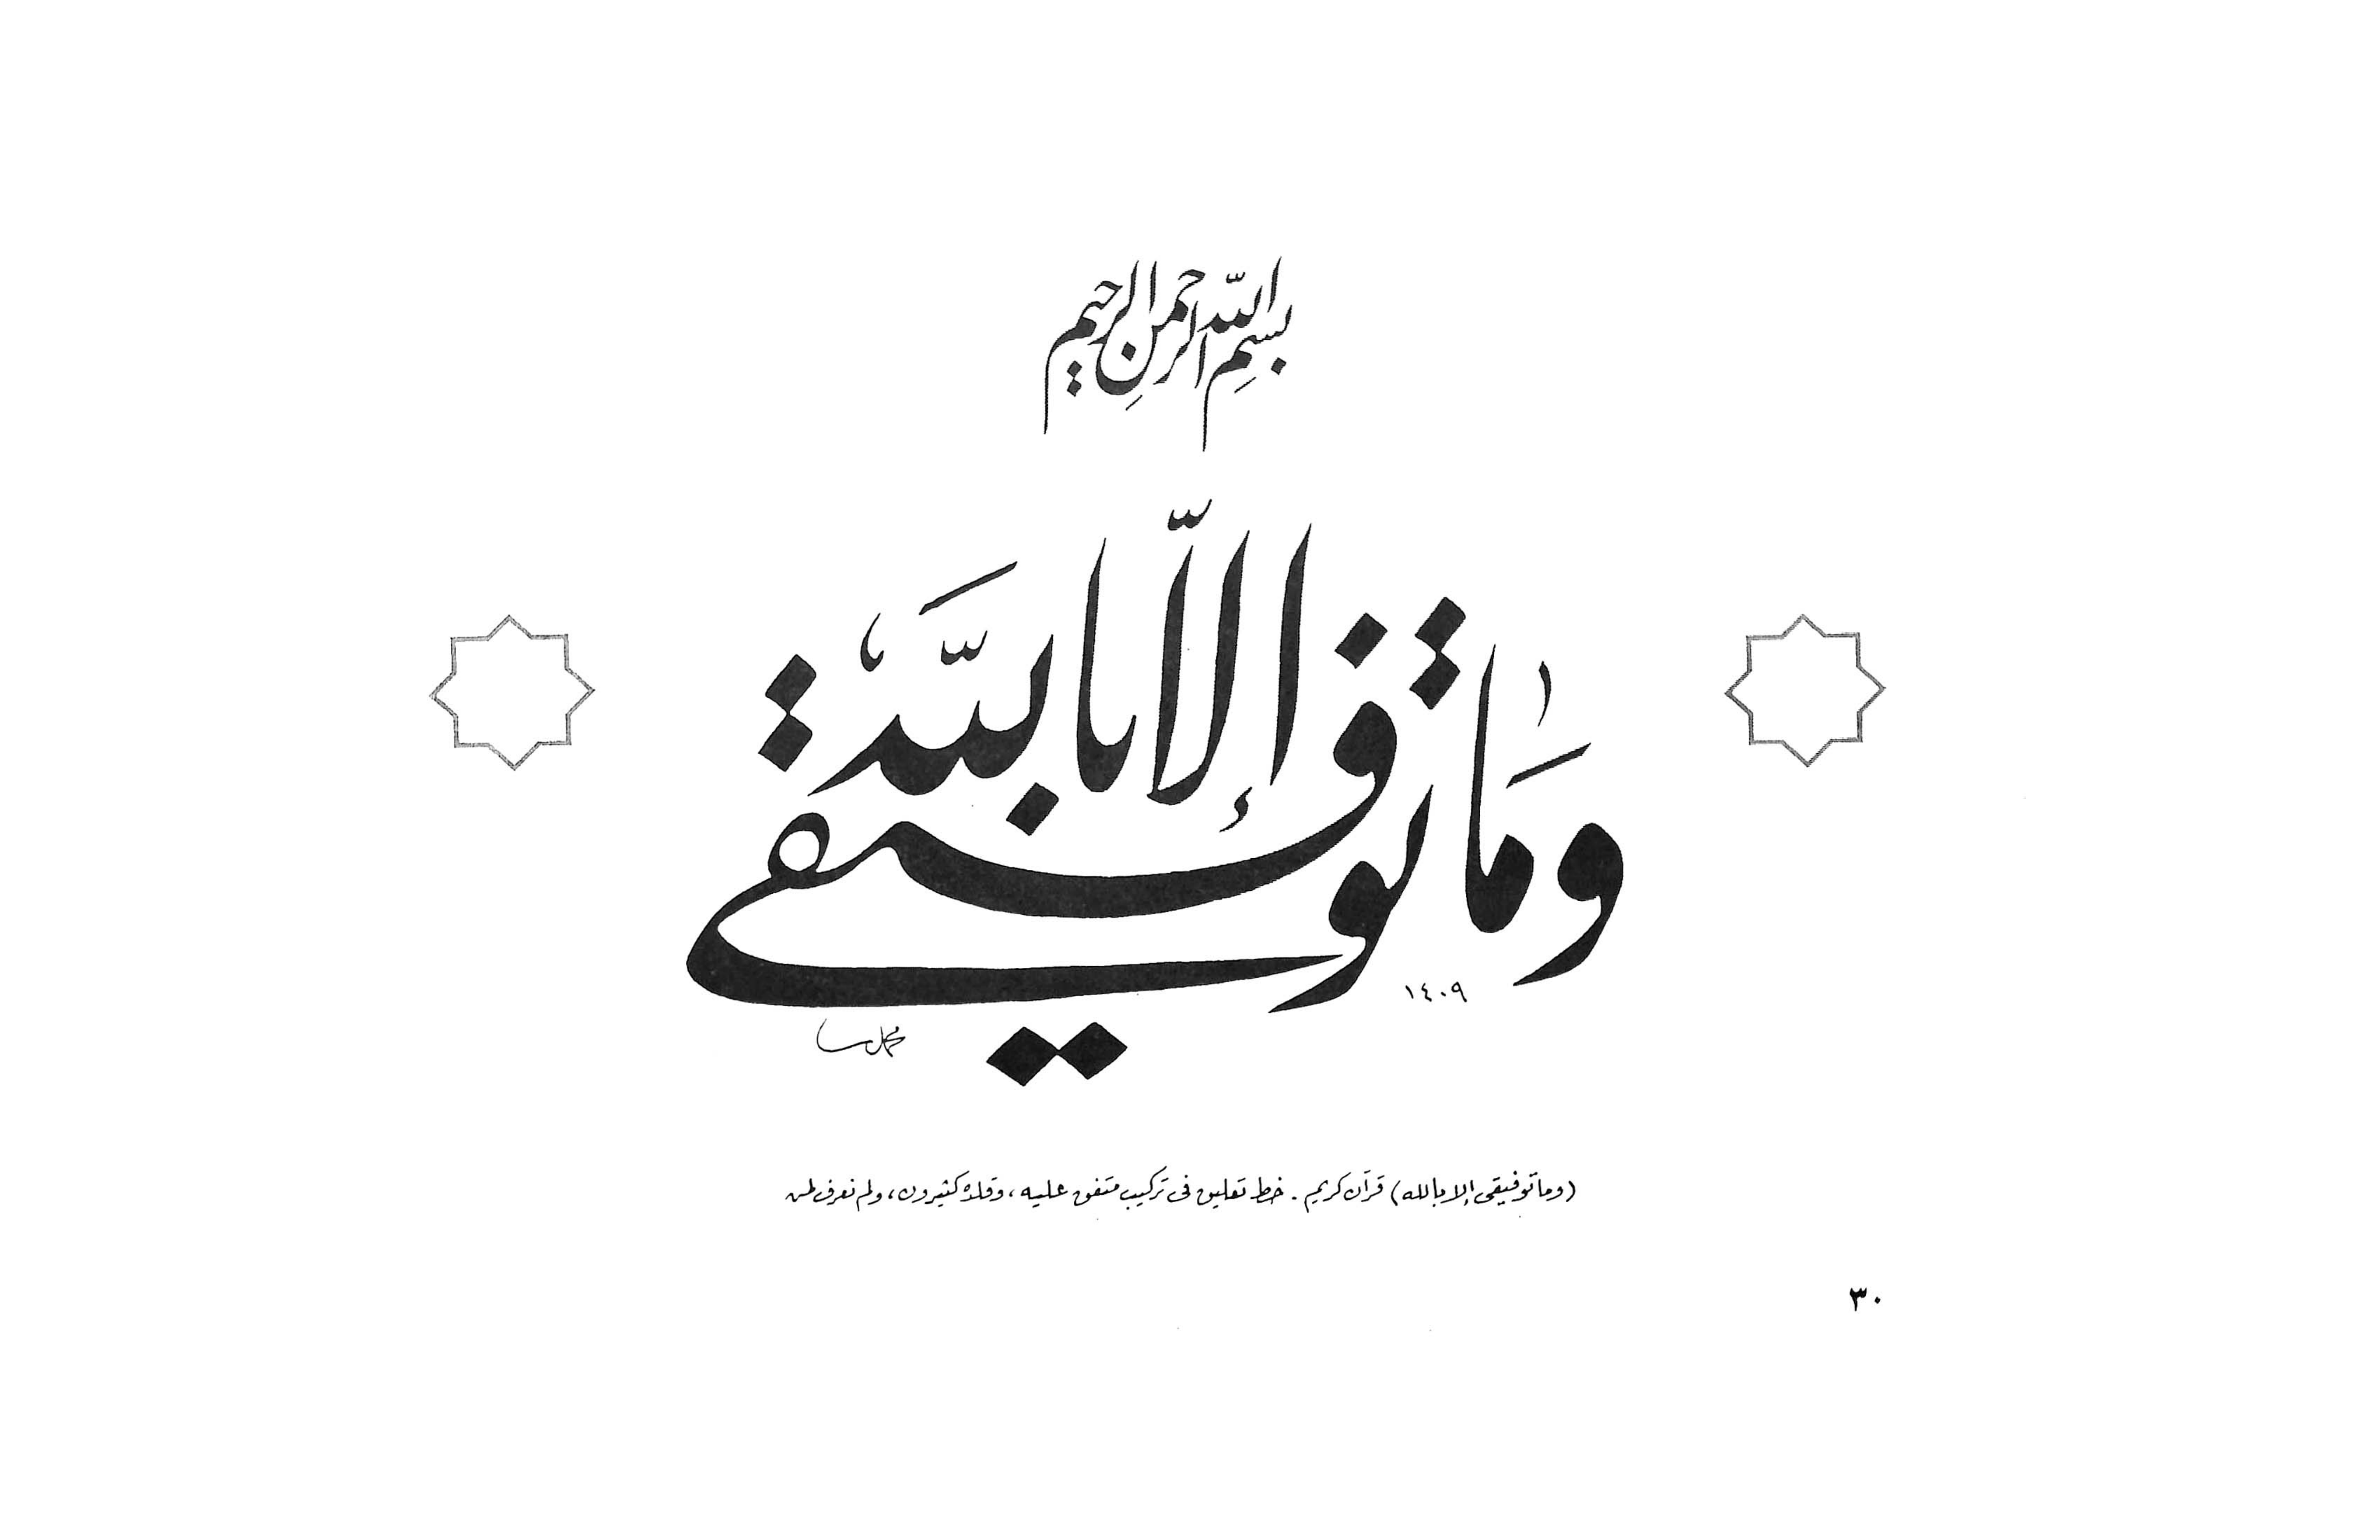 بسم الله الرحمن الرحيم
وما توفيقي إلا بالله
١٤٠٩
محمد
(وما توفيقى إلا بالله) قرآن كريم . خط تعليق فى تركيب متفق عليه ، وقلده كثيرون ، ولم نعرف لمن
٣٠